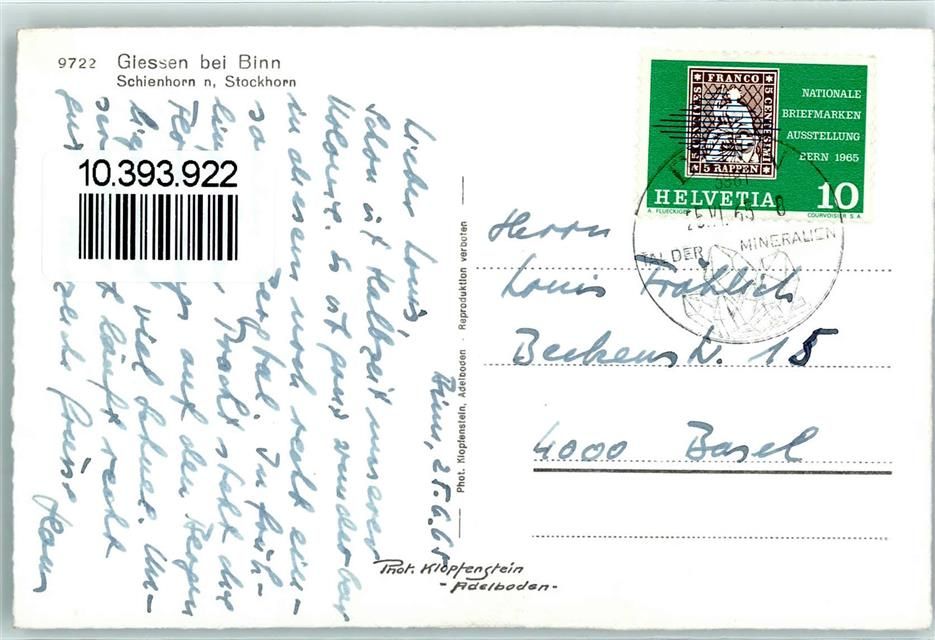 9722 Giessen bei Binn
Schienhorn n, Stockhorn
10.393.922
Binn, 25.6.65
Lieber Louis,
Schon ist Halbzeit unserer
Kolonie. Es ist ganz wunderbar
in diesem noch recht ein-
sa Bergtal. In früh-
lin Pracht steht die
auf den Bergen
lig viel Schnee. Un-
ser läuft recht
gut zliche Grüsse
Hans
Phot. Klopfenstein, Adelboden · Reproduktion verboten
Phot. Klopfenstein
- Adelboden -
FRANCO
5 CENTIMES
5 CENTESIMI
5 RAPPEN
NATIONALE
BRIEFMARKEN
AUSSTELLUNG
BERN 1965
HELVETIA 10
A. FLUECKIGER COURVOISIER S A
TAL DER MINERALIEN
Herrn
Louis Fröhlich
Beckenstr. 15
4000 Basel